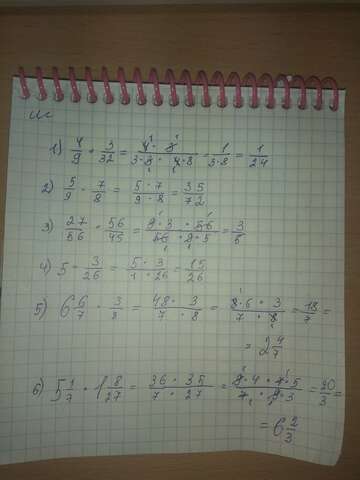 1) 4/9 · 3/32 = 4·3/3·3·4·8 = 1/3·8 = 1/24
2) 5/9 · 7/8 = 5·7/9·8 = 35/72
3) 27/56 · 56/45 = 9·3·56/56·9·5 = 3/5
4) 5 · 3/26 = 5·3/1·26 = 15/26
5) 6 6/7 · 3/8 = 48·3/7·8 = 8·6·3/7·8 = 18/7 =
= 2 4/7
6) 5 1/7 · 1 8/27 = 36·35/7·27 = 9·4·7·5/7·9·3 = 20/3 =
= 6 2/3